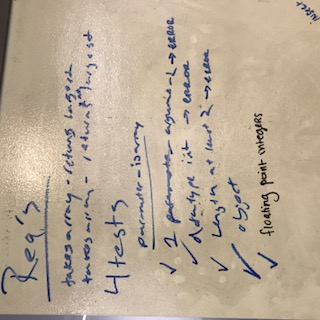 Req's
takes array - returns largest
takes array - returns 2nd largest
4 tests
parameter - is array
✓ 1 parameter argume-t → ERROR
✓ datatype int → ERROR
✓ Length at least 2 → ERROR
✓ object
✓ floating point integers
insert